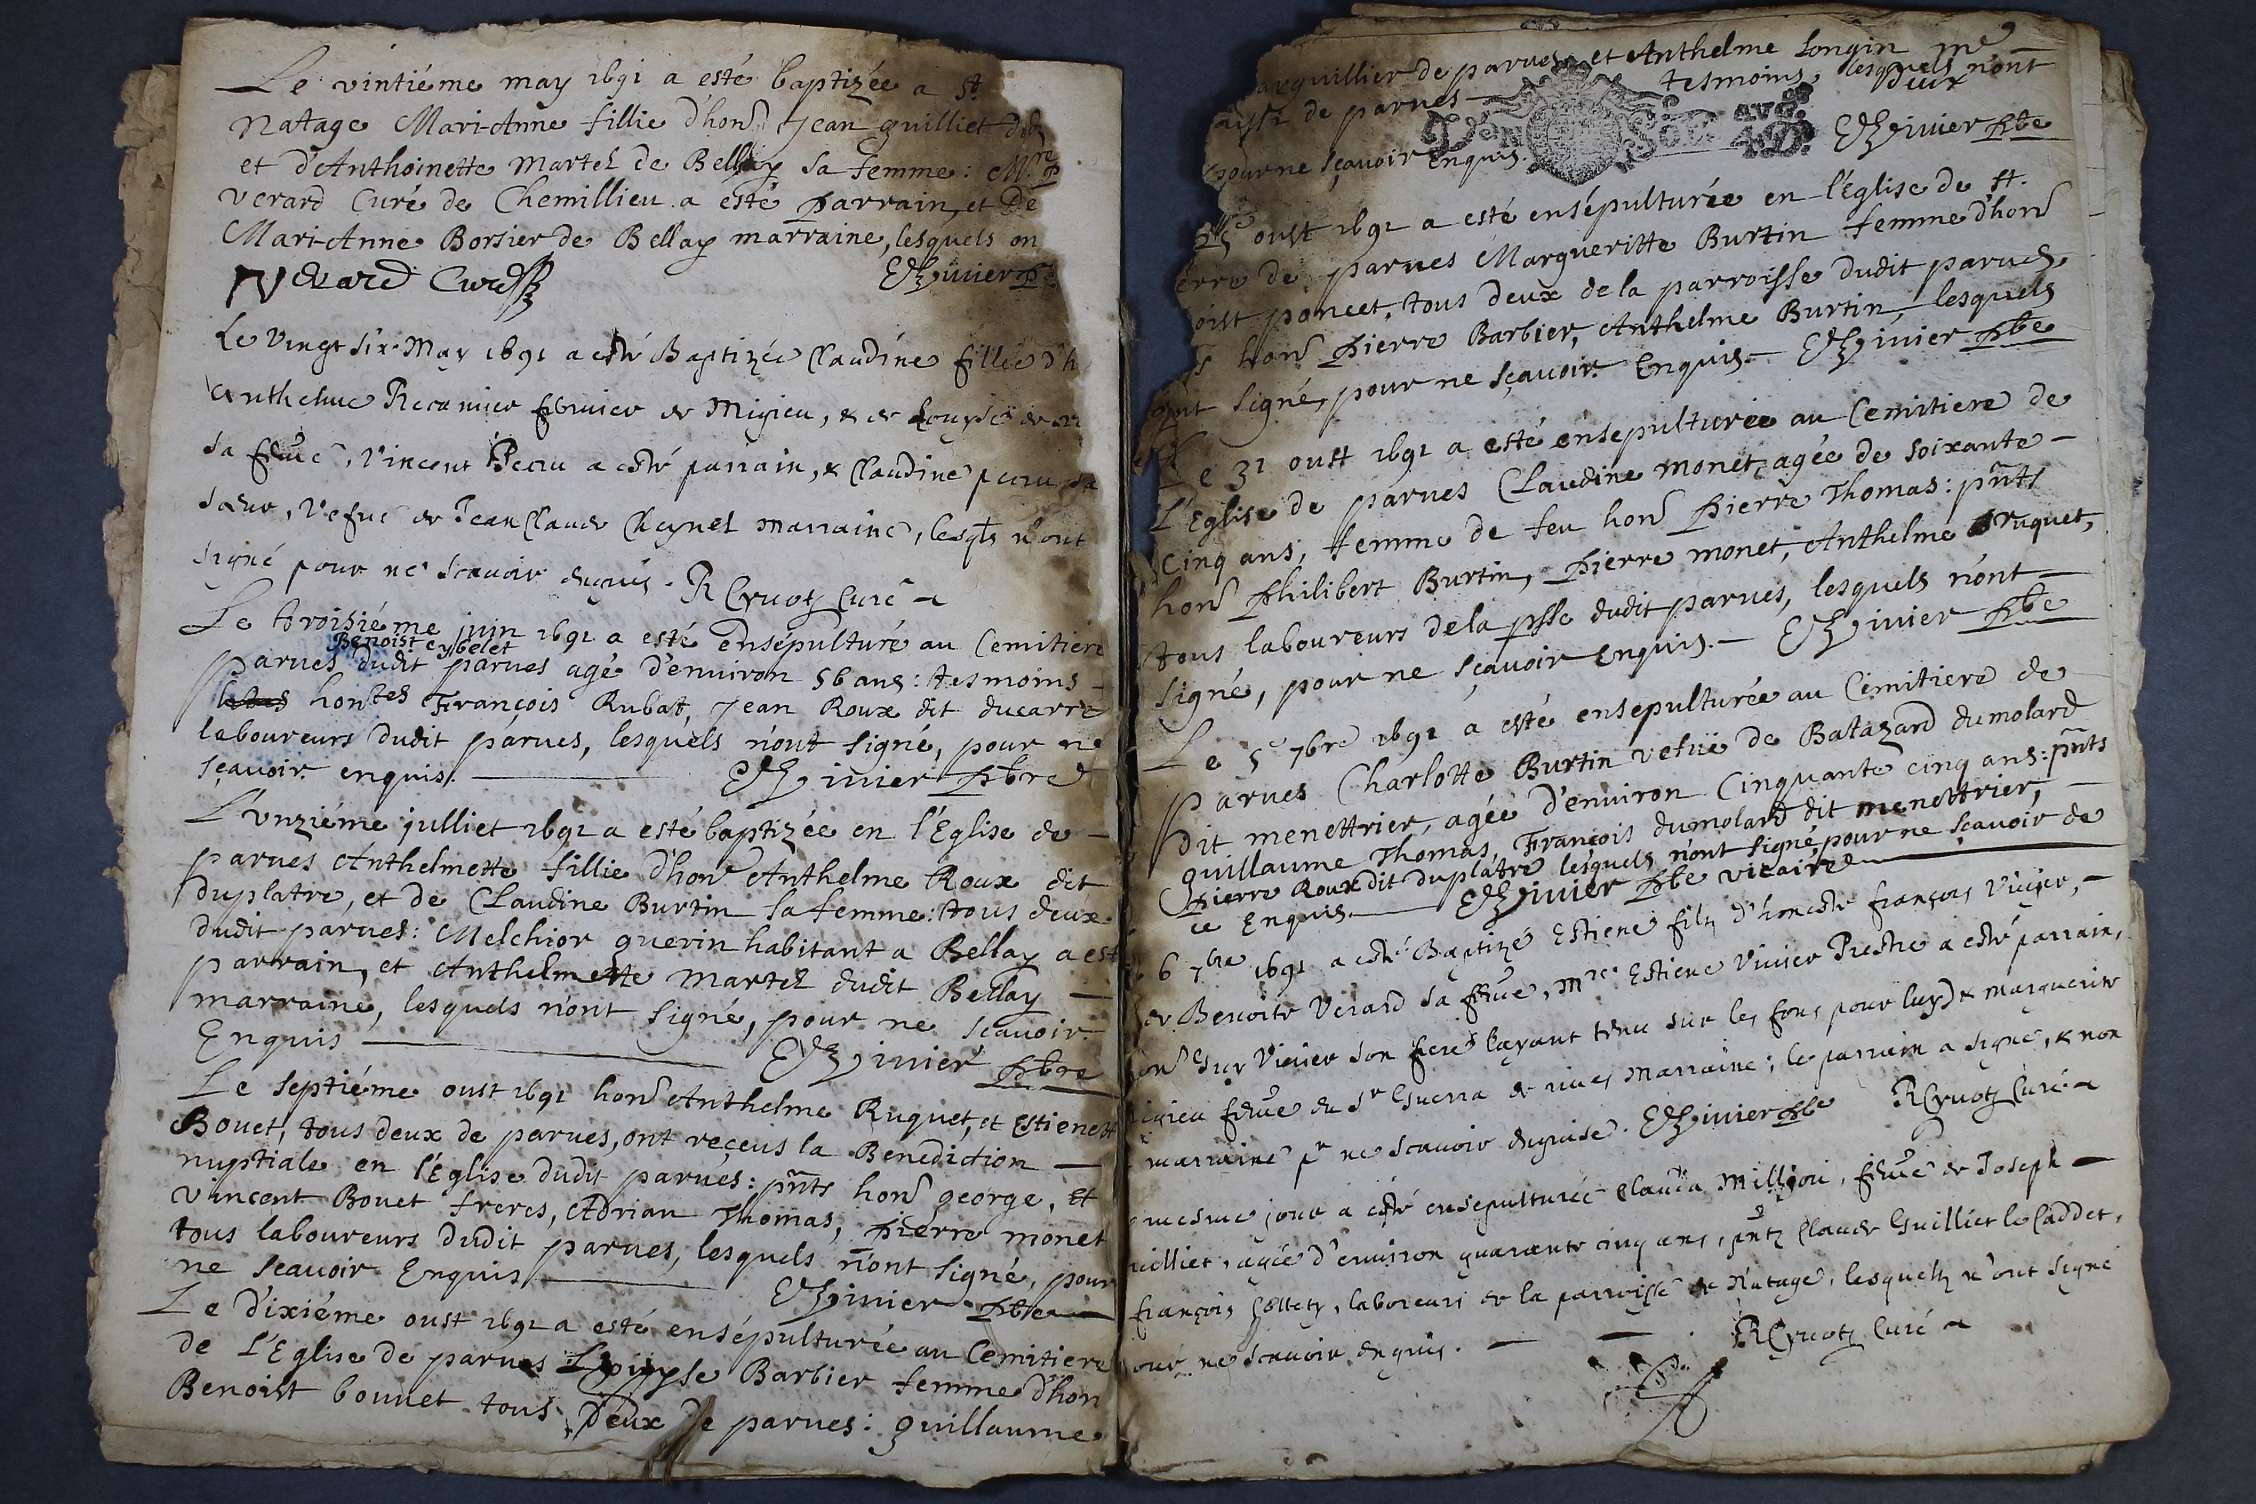 Le vintiéme may 1691 a esté baptizée a St.
Natage Mari-Anne fillie d'hon Jean guilliet
et d'Anthoinette martel de Bellay sa femme: Mre
verard Curé de Chemillieu a esté parrain, et De
Mari-Anne Borsier de Bellay marraine, lesquels on
Verard Curé EVivier
Le vingt six. May 1691 a esté Baptizée Claudine fillie d'h
Anthelme Recamier fermier de Migieu, & de Louyse de
sa feme, Vincent Pecru a esté parrain, & Claudine pecru sa
sœur, Vefue de Jean Claude Cheynel marraine, lesqls n'ont
signé pour ne scauoir enquis. R Cruotz Curé
Le troisiéme juin 1691 a esté ensépulturé au Cemitiere
Benoist cybelet
parues dudit parues agé d'enuiron 56 ans: tesmoins
hontes François Rubat, Jean Roux dit ducarre
laboureurs dudit parues, lesquels n'ont signé, pour ne
sçauoir enquis. EVivier pbre
L'vnziéme julliet 1691 a esté baptizée en l'Eglise de
parues Anthelmette fillie d'hon Anthelme Roux dit
duplatre, et de Claudine Burtin sa femme: tous deux
dudit parues: Melchior guerin habitant a Bellay a est
parrain, et Anthelmette Martel dudit Bellay
marraine, lesquels n'ont signé, pour ne scauoir
Enquis EVivier pbre
Le septiéme oust 1691 hon Anthelme Ruquet, et Estienett
Bouet, tous deux de parues, ont reçeus la Benediction
nuptiale en l'Eglise dudit parues: pnts hon george, et
vincent Bouet freres, Adrian Thomas, pierre monet
tous laboureurs dudit parues, lesquels n'ont signé, pour
ne scauoir Enquis EVivier pbre
Le dixiéme oust 1691 a esté ensépulturée au Cemitiere
de l'Eglise de parues Louyse Barbier femme d'hon
Benoist bouuet tous deux de parues: guillaume
arguillier de parues, et Anthelme Longin me
de parues tesmoins, lesquels n'ont
deux
pour ne sçauoir Enquis. EVivier pbe
oust 1691 a esté ensépulturée en l'église de St.
erre de parues Margueritte Burtin femme d'hon
oist poncet, tous deux de la parroisse dudit parues
hon pierre Barbier, Anthelme Burtin, lesquels
ont signé, pour ne sçauoir Enquis EVivier pbe
Le 31 oust 1691 a esté ensepulturée au Cemitiere de
L'Eglise de parues Claudine monet, agée de soixante
cinq ans, femme de feu hon pierre Thomas: pnts
hon philibert Burtin, pierre monet, Anthelme Truquet,
tous laboureurs de la psse dudit parues, lesquels n'ont
signé, pour ne sçauoir enquis. EVivier pbe
Le 5e 7bre 1691 a esté ensepulturée au Cemitiere de
parues Charlotte Burtin vefuë de Batazard dumolard
dit menettrier, agée d'enuiron Cinquante cinq ans: pnts
guillaume Thomas, François dumolard dit menettrier,
pierre Roux dit duplatre lesquels n'ont signé, pour ne sçauoir de
ce Enquis EVivier pbe vicaire
6 7bre 1691 a esté Baptizé Estiene filz d'honeste françois Vivier,
de Benoite Verard sa feme, Mre Estiene Vivier Prestre a esté parrain,
hon Guy Vivier son frere l'ayant tenu sur les fons pour luy, & Marguerite
feme du Sr Guerra de marraine; le parrain a signé, & non
marraine pr ne scauoir enquise. EVivier pbe R Cruotz Curé
mesme jour a esté ensepulturée Clauda Millioii, feme de Joseph
illiet, agée d'enuiron quarante cinq ans, pntz Claude Guilliet le Caddet,
françois Collety, laboreurs de la parroisse de Natage, lesquelz n'ont signé
our ne scauoir enquis. R Cruotz Curé